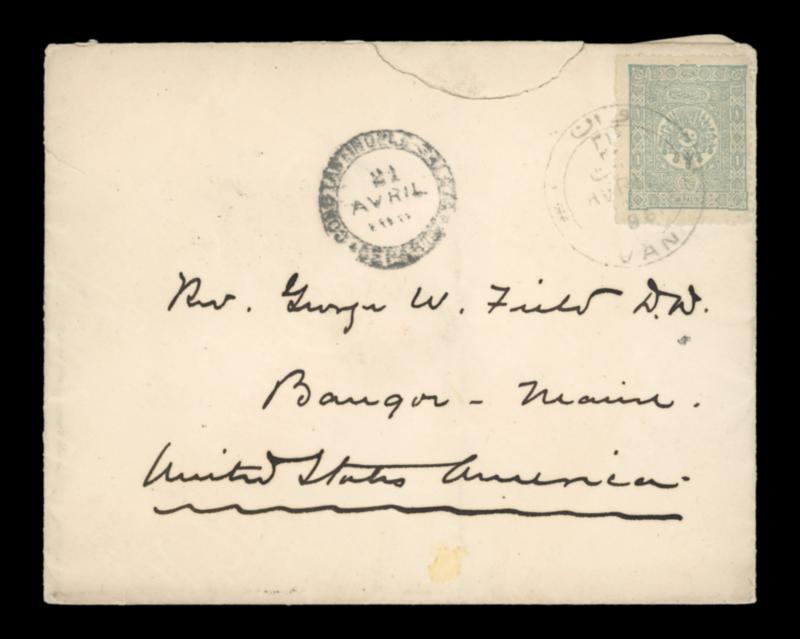 CONSTANTINOPLE
21
AVRIL
وان
AVR
96
VAN
1 1
Rev. George W. Field D.D.
Bangor - Maine.
United States America.